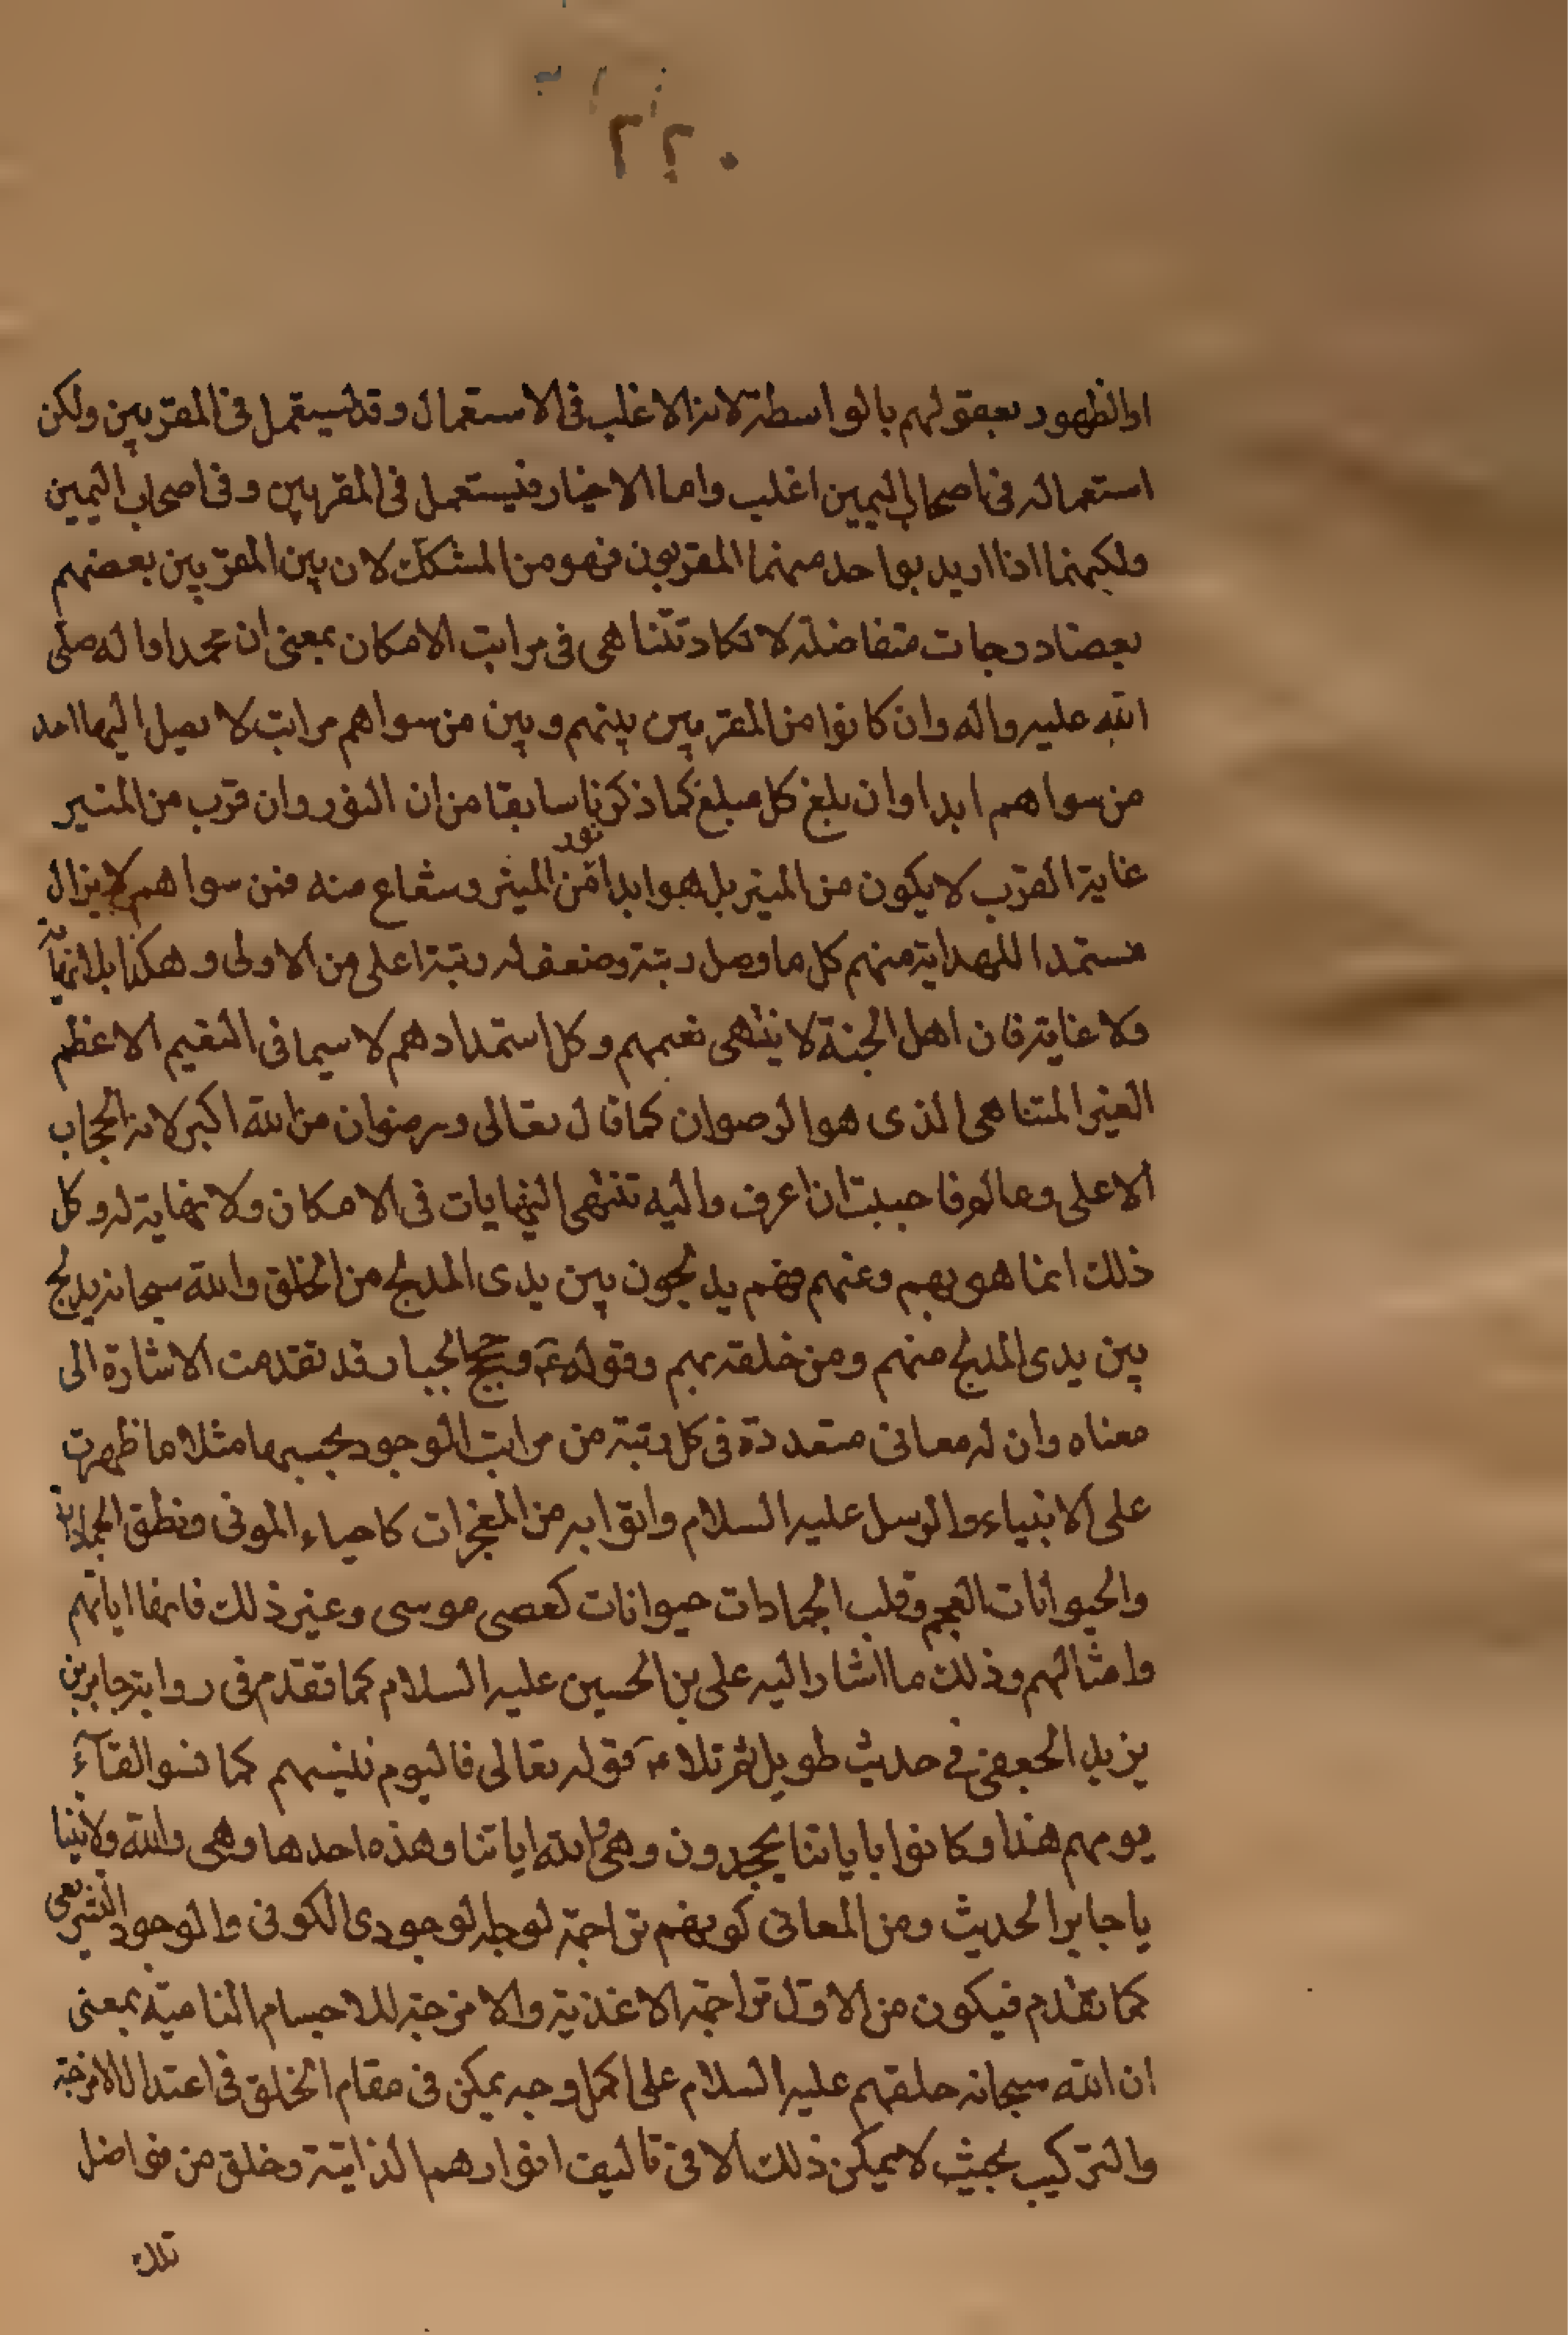 ٢٢٠
او الظهور بعقولهم بالواسطة لانه الاغلب فى الاستعمال وقد يستعمل فى المقربين ولكن
استعماله فى اصحاب اليمين اغلب واما الاخيار فيستعمل فى المقربين وفى اصحاب اليمين
ولكنهما اذا اريد بواحد منهما المقربون فهو من المشكك لان بين المقربين بعضهم
بعضا درجات متفاضلة لا تكاد تتناهى فى مراتب الامكان بمعنى ان محمدا واله صلى
الله عليه واله وان كانوا من المقربين بينهم وبين من سواهم مراتب لا يصل اليها احد
من سواهم ابدا وان بلغ كل مبلغ كما ذكرنا سابقا من ان النور وان قرب من المنير
غاية القرب لا يكون من المنير بل هو ابدا من نور المنير وشعاع منه فمن سواهم لا يزال
مستمدا للهداية منهم كل ما وصل رتبة وضعف له رتبة اعلى من الاولى وهكذا بلا نهاية
ولا غاية فان اهل الجنة لا ينتهى نعيمهم وكل استمدادهم لا سيما فى النعيم الاعظم
الغير المتناهى الذى هو الرضوان كما قال تعالى ورضوان من الله اكبر لانه الحجاب
الاعلى وعالم فاحببت ان اعرف واليه تنتهى النهايات فى الامكان ولا نهاية له وكل
ذلك انما هو بهم وعنهم فهم يدلجون بين يدى المدلج من الخلق والله سبحانه يدلج
بين يدى المدلج منهم ومن خلقه بهم وقوله ع وحجج الجبار قد تقدمت الاشارة الى
معناه وان له معانى متعددة فى كل رتبة من مراتب الوجود بحسبها مثلا ما ظهرت
على الانبياء والرسل عليه السلام واتوا به من المعجزات كاحياء الموتى ونطق الجمادات
والحيوانات العجم وقلب الجمادات حيوانات كعصى موسى وغير ذلك فانها اياتهم
وامثالهم وذلك ما اشار اليه على بن الحسين عليه السلام كما تقدم فى رواية جابر بن
يزيد الجعفى فى حديث طويل ثم تلا ع قوله تعالى فاليوم ننسيهم كما نسوا لقآء
يومهم هذا وكانوا باياتنا يجحدون وهى والله اياتنا وهذه احدها وهى والله ولايتنا
يا جابر الحديث ومن المعانى كونهم تراجمة الوجودى الكونى والوجود التشريعى
كما تقدم فيكون من الاول تراجمة الاغذية والامزجة للاجسام النامية بمعنى
ان الله سبحانه خلقهم عليه السلام على اكمل وجه يمكن فى مقام الخلق فى اعتدال الامزجة
والتركيب بحيث لا يمكن ذلك الا فى تاليف انوارهم الذاتية وخلق من فواضل
تلك